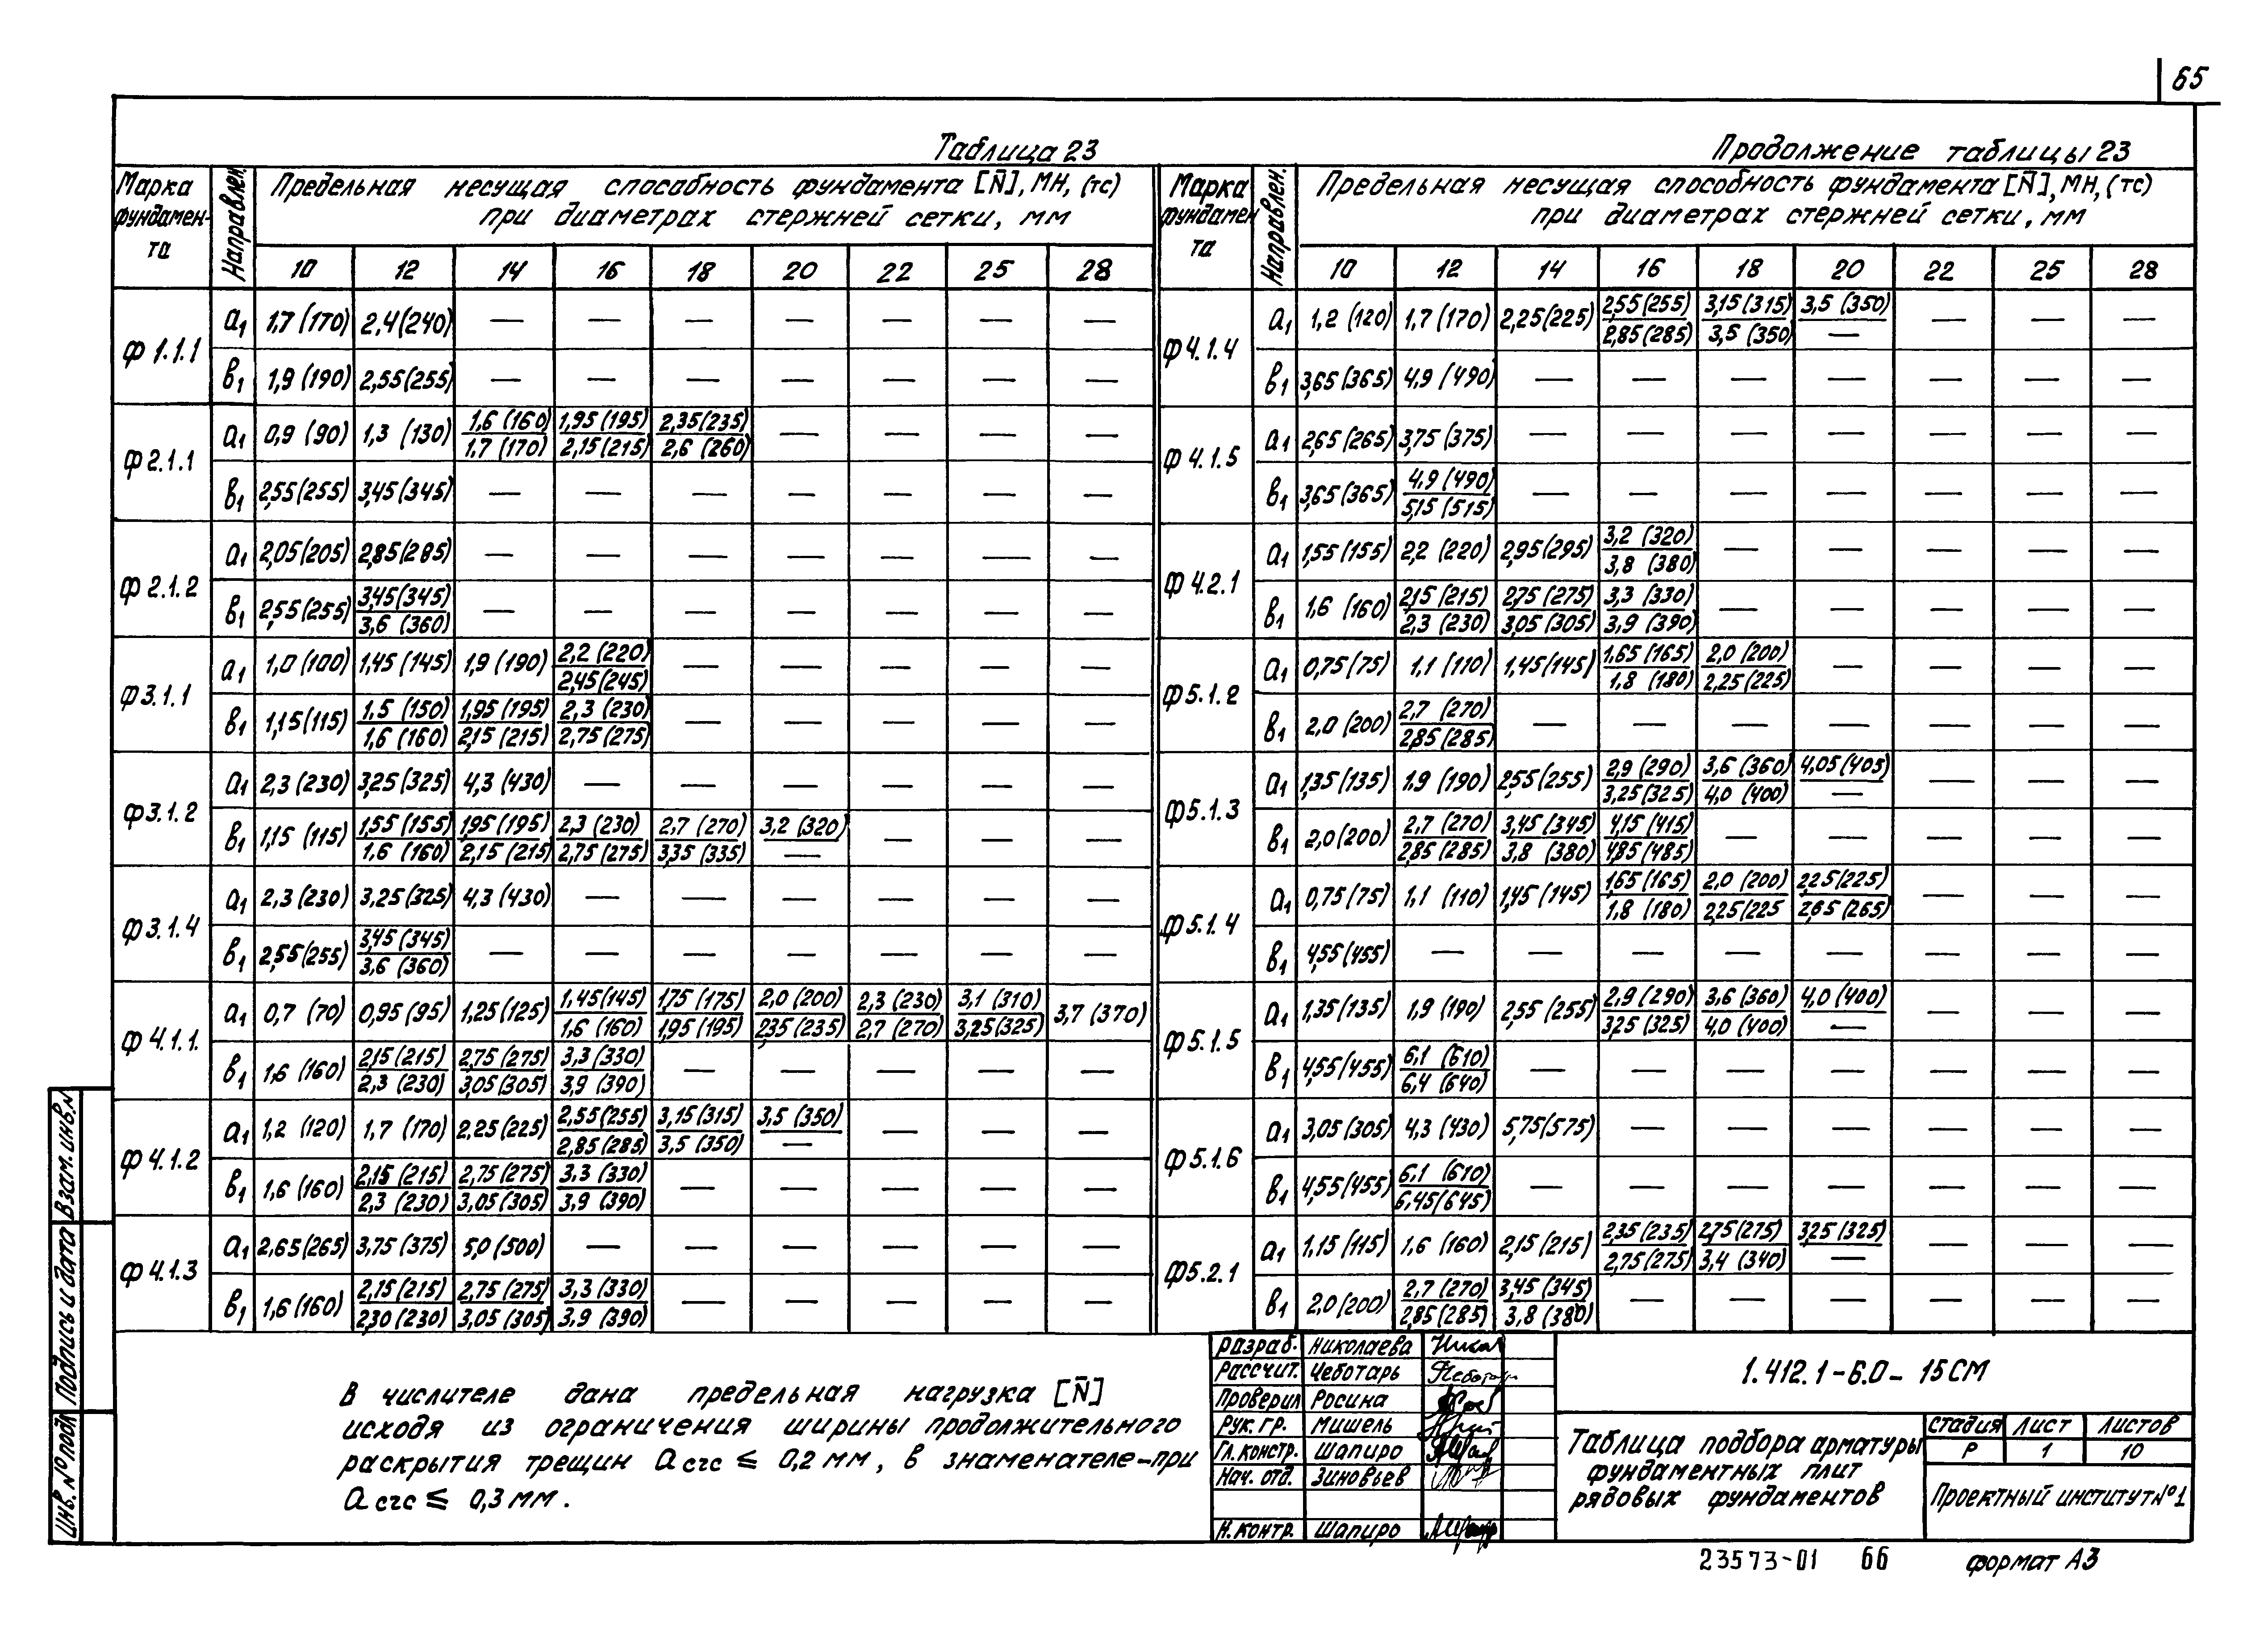 65
Таблица 23
Марка фундамен-та | Направлен. | Предельная несущая способность фундамента [N̄], МН, (тс) при диаметрах стержней сетки, мм
10 | 12 | 14 | 16 | 18 | 20 | 22 | 25 | 28
Ф 1.1.1 | a1 | 1,7 (170) | 2,4 (240) | — | — | — | — | — | — | —
в1 | 1,9 (190) | 2,55 (255) | — | — | — | — | — | — | —
Ф 2.1.1 | a1 | 0,9 (90) | 1,3 (130) | 1,6 (160) / 1,7 (170) | 1,95 (195) / 2,15 (215) | 2,35 (235) / 2,6 (260) | — | — | — | —
в1 | 2,55 (255) | 3,45 (345) | — | — | — | — | — | — | —
Ф 2.1.2 | a1 | 2,05 (205) | 2,85 (285) | — | — | — | — | — | — | —
в1 | 2,55 (255) | 3,45 (345) / 3,6 (360) | — | — | — | — | — | — | —
Ф 3.1.1 | a1 | 1,0 (100) | 1,45 (145) | 1,9 (190) | 2,2 (220) / 2,45 (245) | — | — | — | — | —
в1 | 1,15 (115) | 1,5 (150) / 1,6 (160) | 1,95 (195) / 2,15 (215) | 2,3 (230) / 2,75 (275) | — | — | — | — | —
Ф 3.1.2 | a1 | 2,3 (230) | 3,25 (325) | 4,3 (430) | — | — | — | — | — | —
в1 | 1,15 (115) | 1,55 (155) / 1,6 (160) | 1,95 (195) / 2,15 (215) | 2,3 (230) / 2,75 (275) | 2,7 (270) / 3,35 (335) | 3,2 (320) / — | — | — | —
Ф 3.1.4 | a1 | 2,3 (230) | 3,25 (325) | 4,3 (430) | — | — | — | — | — | —
в1 | 2,55 (255) | 3,45 (345) / 3,6 (360) | — | — | — | — | — | — | —
Ф 4.1.1. | a1 | 0,7 (70) | 0,95 (95) | 1,25 (125) | 1,45 (145) / 1,6 (160) | 1,75 (175) / 1,95 (195) | 2,0 (200) / 2,35 (235) | 2,3 (230) / 2,7 (270) | 3,1 (310) / 3,25 (325) | 3,7 (370)
в1 | 1,6 (160) | 2,15 (215) / 2,3 (230) | 2,75 (275) / 3,05 (305) | 3,3 (330) / 3,9 (390) | — | — | — | — | —
Ф 4.1.2 | a1 | 1,2 (120) | 1,7 (170) | 2,25 (225) | 2,55 (255) / 2,85 (285) | 3,15 (315) / 3,5 (350) | 3,5 (350) / — | — | — | —
в1 | 1,6 (160) | 2,15 (215) / 2,3 (230) | 2,75 (275) / 3,05 (305) | 3,3 (330) / 3,9 (390) | — | — | — | — | —
Ф 4.1.3 | a1 | 2,65 (265) | 3,75 (375) | 5,0 (500) | — | — | — | — | — | —
в1 | 1,6 (160) | 2,15 (215) / 2,30 (230) | 2,75 (275) / 3,05 (305) | 3,3 (330) / 3,9 (390) | — | — | — | — | —
Продолжение таблицы 23
Марка фундамен та | Направлен. | Предельная несущая способность фундамента [N̄], МН, (тс) при диаметрах стержней сетки, мм
10 | 12 | 14 | 16 | 18 | 20 | 22 | 25 | 28
Ф 4.1.4 | a1 | 1,2 (120) | 1,7 (170) | 2,25 (225) | 2,55 (255) / 2,85 (285) | 3,15 (315) / 3,5 (350) | 3,5 (350) / — | — | — | —
в1 | 3,65 (365) | 4,9 (490) | — | — | — | — | — | — | —
Ф 4.1.5 | a1 | 2,65 (265) | 3,75 (375) | — | — | — | — | — | — | —
в1 | 3,65 (365) | 4,9 (490) / 5,15 (515) | — | — | — | — | — | — | —
Ф 4.2.1 | a1 | 1,55 (155) | 2,2 (220) | 2,95 (295) | 3,2 (320) / 3,8 (380) | — | — | — | — | —
в1 | 1,6 (160) | 2,15 (215) / 2,3 (230) | 2,75 (275) / 3,05 (305) | 3,3 (330) / 3,9 (390) | — | — | — | — | —
Ф 5.1.2 | a1 | 0,75 (75) | 1,1 (110) | 1,45 (145) | 1,65 (165) / 1,8 (180) | 2,0 (200) / 2,25 (225) | — | — | — | —
в1 | 2,0 (200) | 2,7 (270) / 2,85 (285) | — | — | — | — | — | — | —
Ф 5.1.3 | a1 | 1,35 (135) | 1,9 (190) | 2,55 (255) | 2,9 (290) / 3,25 (325) | 3,6 (360) / 4,0 (400) | 4,05 (405) / — | — | — | —
в1 | 2,0 (200) | 2,7 (270) / 2,85 (285) | 3,45 (345) / 3,8 (380) | 4,15 (415) / 4,85 (485) | — | — | — | — | —
Ф 5.1.4 | a1 | 0,75 (75) | 1,1 (110) | 1,45 (145) | 1,65 (165) / 1,8 (180) | 2,0 (200) / 2,25 (225 | 2,25 (225) / 2,65 (265) | — | — | —
в1 | 4,55 (455) | — | — | — | — | — | — | — | —
Ф 5.1.5 | a1 | 1,35 (135) | 1,9 (190) | 2,55 (255) | 2,9 (290) / 3,25 (325) | 3,6 (360) / 4,0 (400) | 4,0 (400) / — | — | — | —
в1 | 4,55 (455) | 6,1 (610) / 6,4 (640) | — | — | — | — | — | — | —
Ф 5.1.6 | a1 | 3,05 (305) | 4,3 (430) | 5,75 (575) | — | — | — | — | — | —
в1 | 4,55 (455) | 6,1 (610) / 6,45 (645) | — | — | — | — | — | — | —
Ф 5.2.1 | a1 | 1,15 (115) | 1,6 (160) | 2,15 (215) | 2,35 (235) / 2,75 (275) | 2,75 (275) / 3,4 (340) | 3,25 (325) / — | — | — | —
в1 | 2,0 (200) | 2,7 (270) / 2,85 (285) | 3,45 (345) / 3,8 (380) | — | — | — | — | — | —
В числителе дана предельная нагрузка [N̄]
исходя из ограничения ширины продолжительного
раскрытия трещин a crc ≤ 0,2 мм, в знаменателе-при
a crc ≤ 0,3 мм.
Инв. № подл | Подпись и дата | Взам. инв. N
Разраб. Николаева
Рассчит. Чеботарь
Проверил Росина
Рук. гр. Мишель
Гл. констр. Шапиро
Нач. отд. Зиновьев
Н. контр. Шапиро
1.412.1-6.0- 15СМ
Таблица подбора арматуры
фундаментных плит
рядовых фундаментов
Стадия | Лист | Листов
Р | 1 | 10
Проектный институт №1
23573-01 66 формат А3